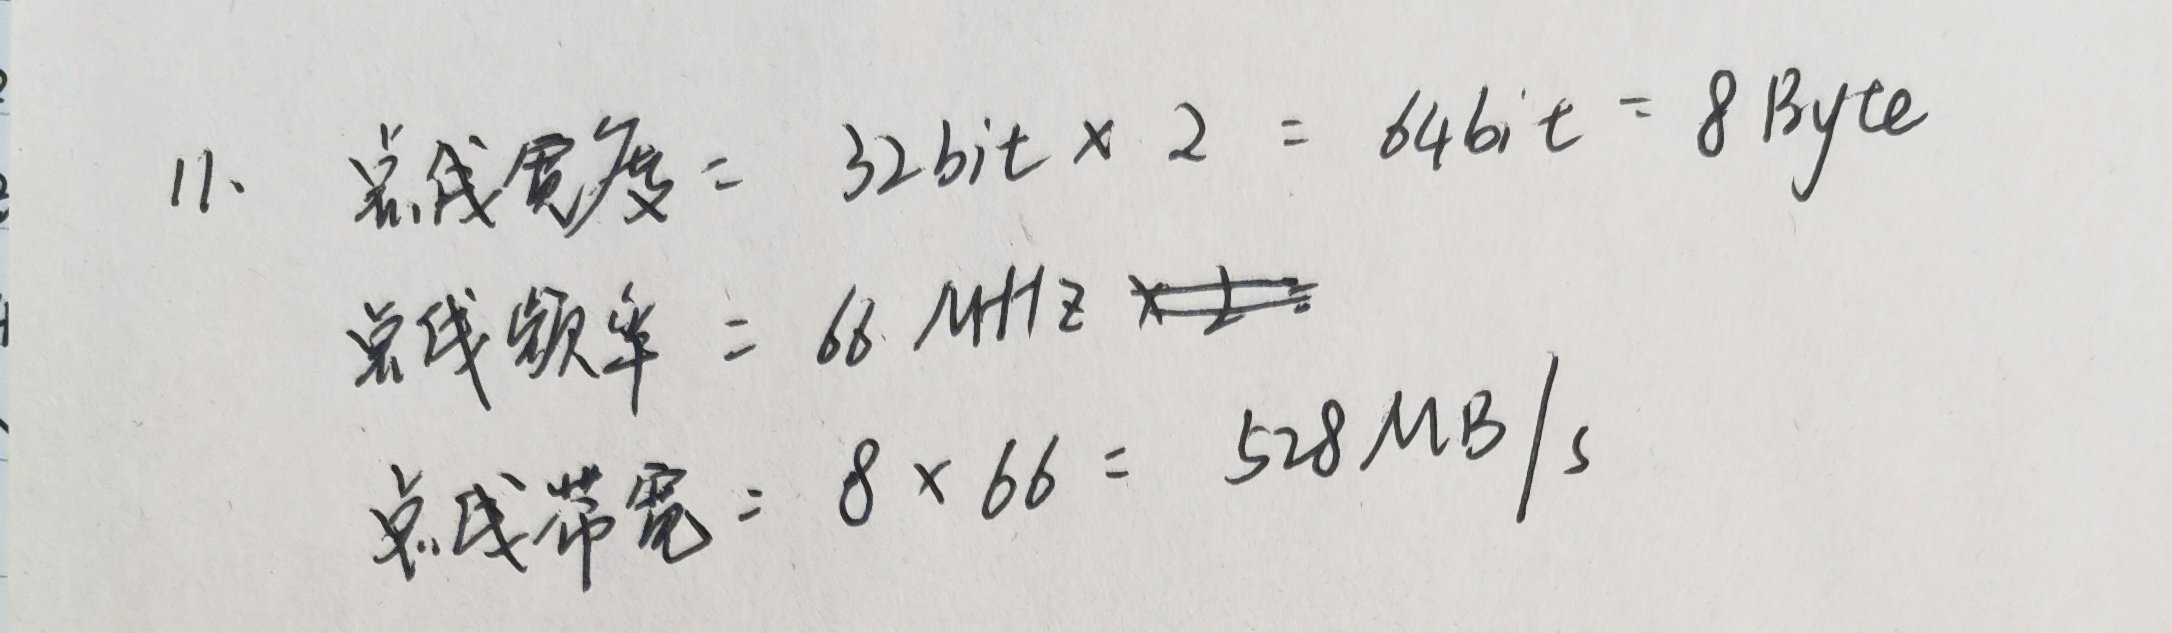 11. 总线宽度 = 32bit × 2 = 64bit = 8 Byte
总线频率 = 66 MHz
总线带宽 = 8 × 66 = 528 MB/s